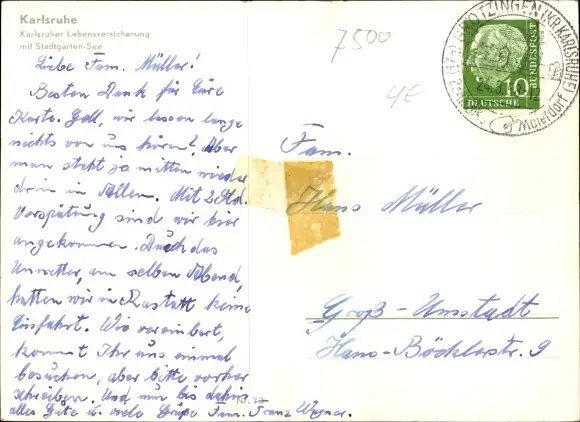 Karlsruhe
Karlsruher Lebensversicherung
mit Stadtgarten-See
Liebe Fam. Müller!
Besten Dank für Eure
Karte. Gell, wir lassen lange
nichts von uns hören? Aber
man steht ja mitten wieder
drin in Allem. Mit 2 Std.
Verspätung sind wir hier
angekommen. Durch das
Unwetter, am selben Abend,
hatten wir in Rastatt keine
Einfahrt. Wie vereinbart,
kommt Ihr uns einmal
besuchen, aber bitte vorher
schreiben. Und nun bis dahin
alles Gute u. viele Grüße Fam. Franz Wagner.
Nr. 22
7500
4€
10
DEUTSCHE
BUNDESPOST
(KR KARLSRUHE)
Fam.
Hans Müller
Groß-Umstadt
Hans-Böcklerstr. 9